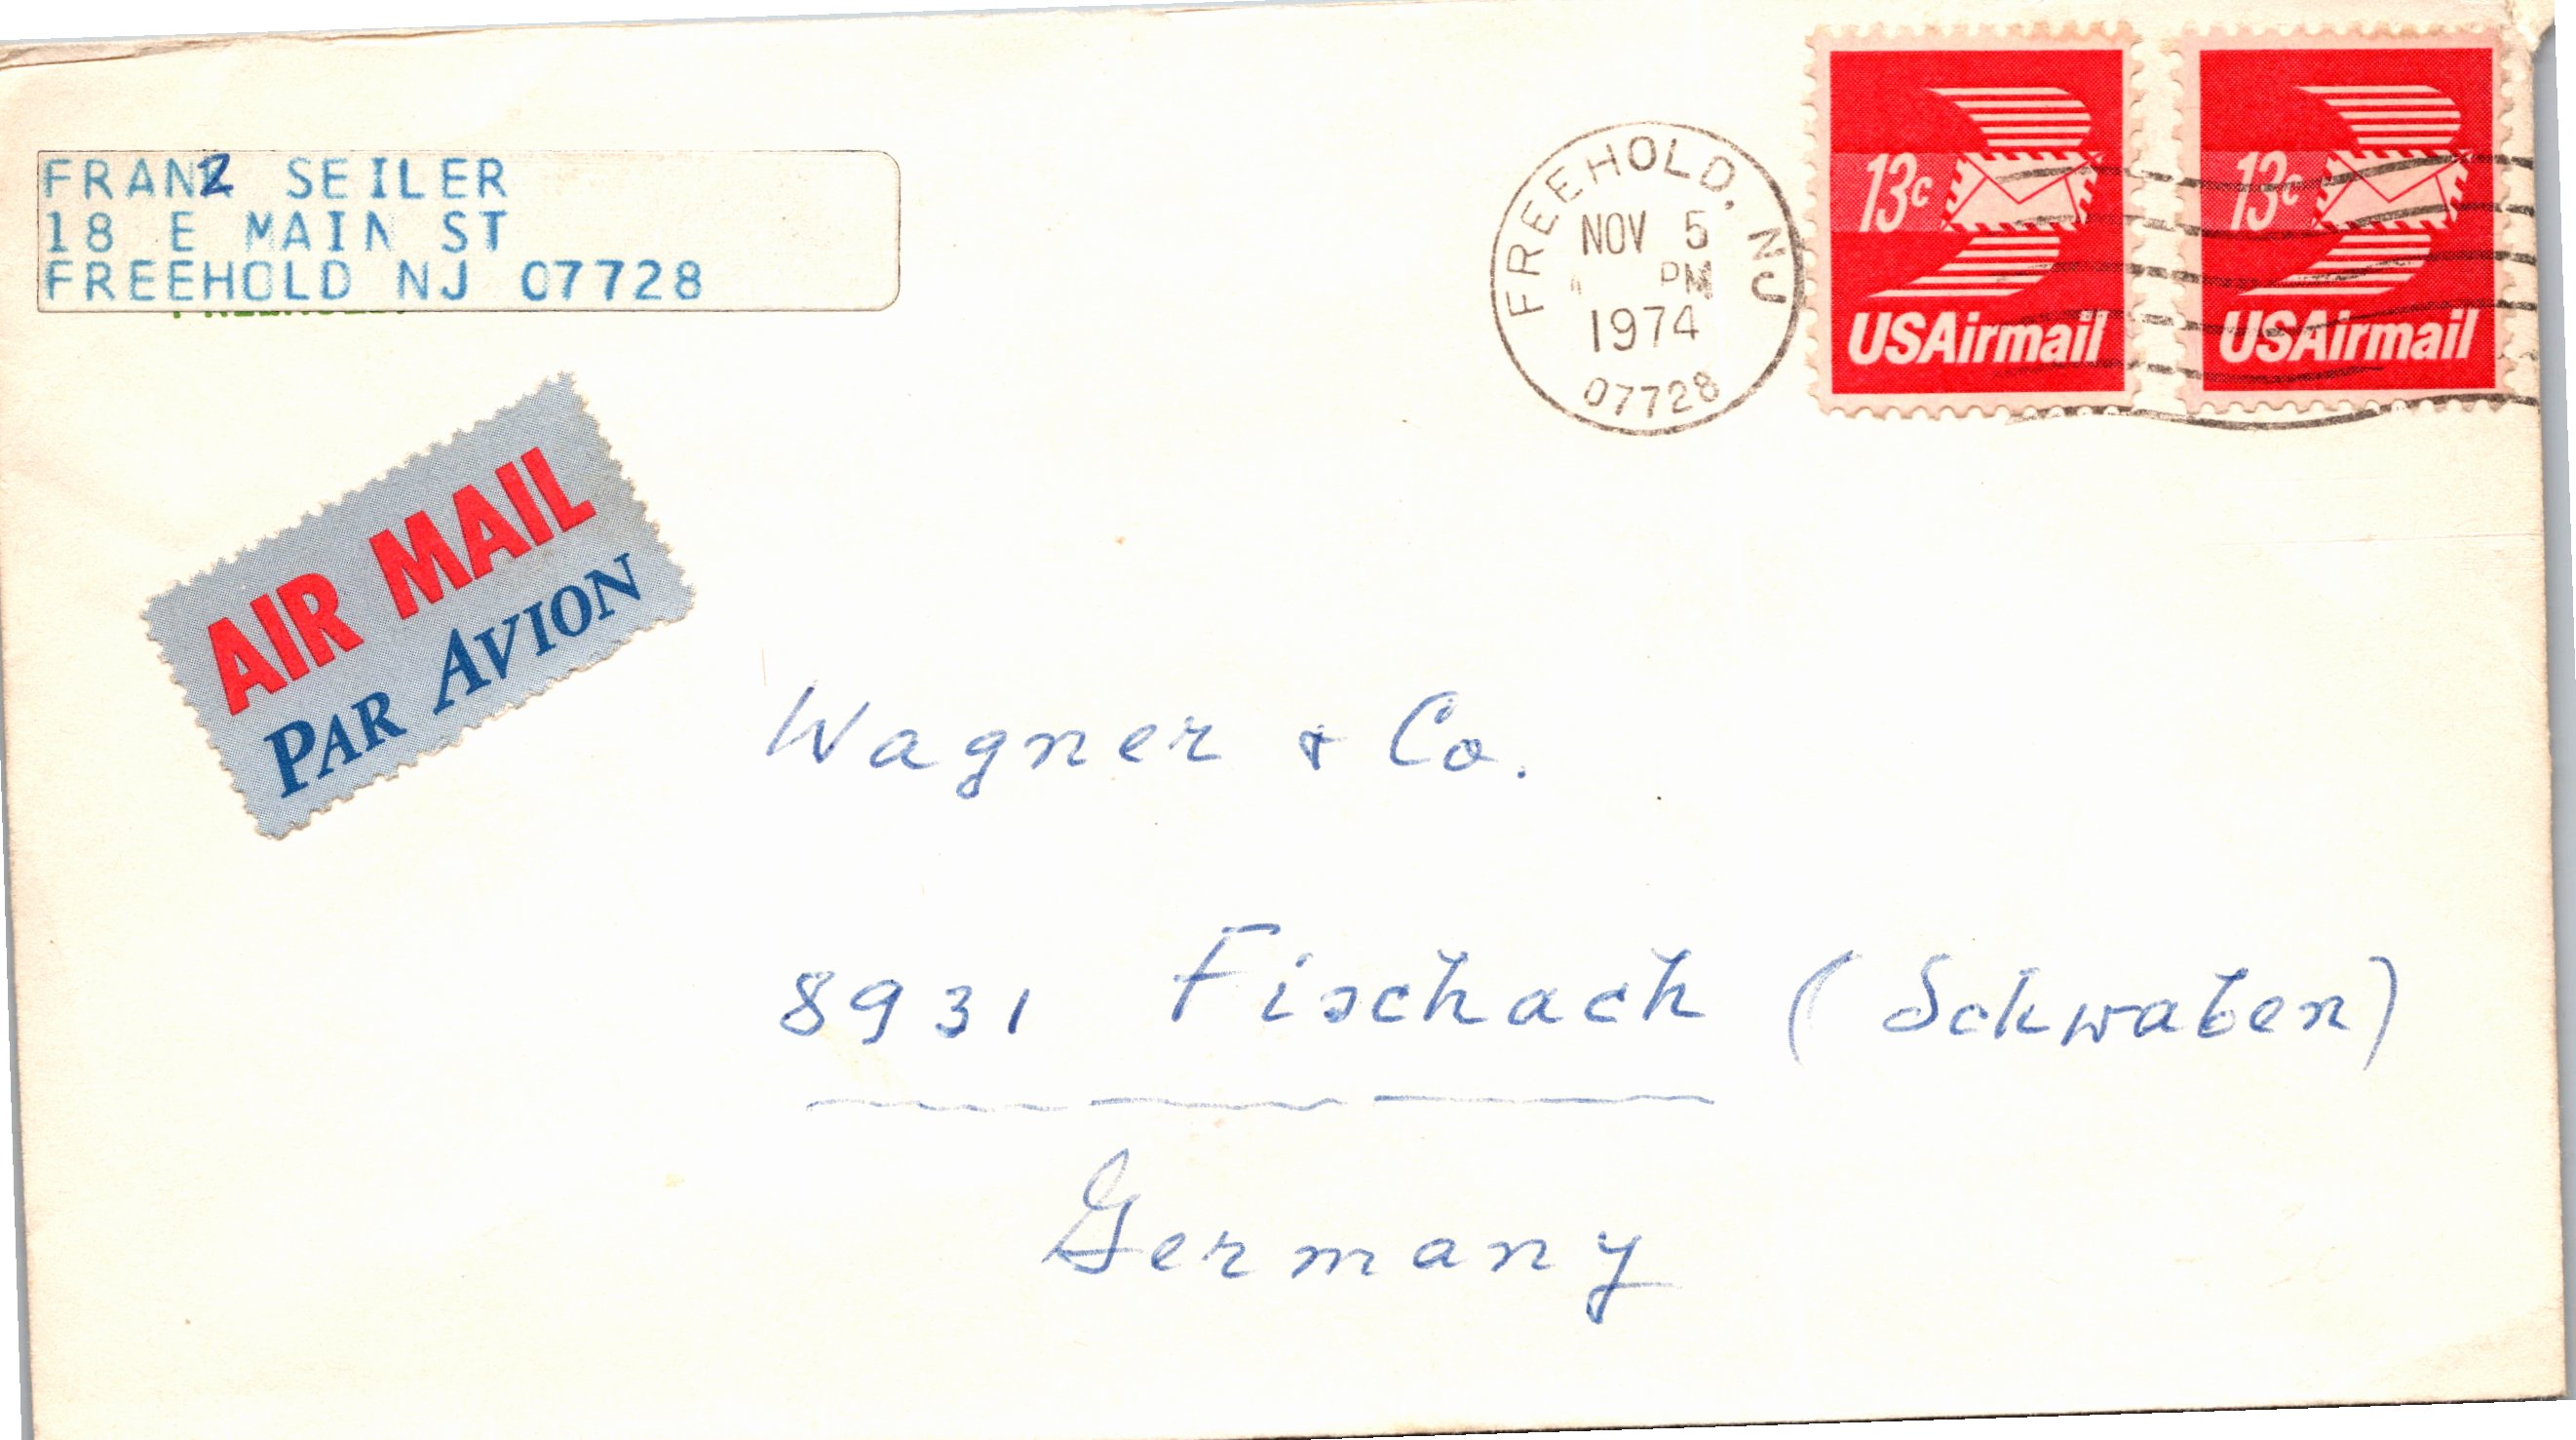 FRANZ SEILER
18 E MAIN ST
FREEHOLD NJ 07728
AIR MAIL
PAR AVION
FREEHOLD, NJ
NOV 5
PM
1974
07728
13c
USAirmail
13c
USAirmail
Wagner & Co.
8931 Fischach (Schwaben)
Germany